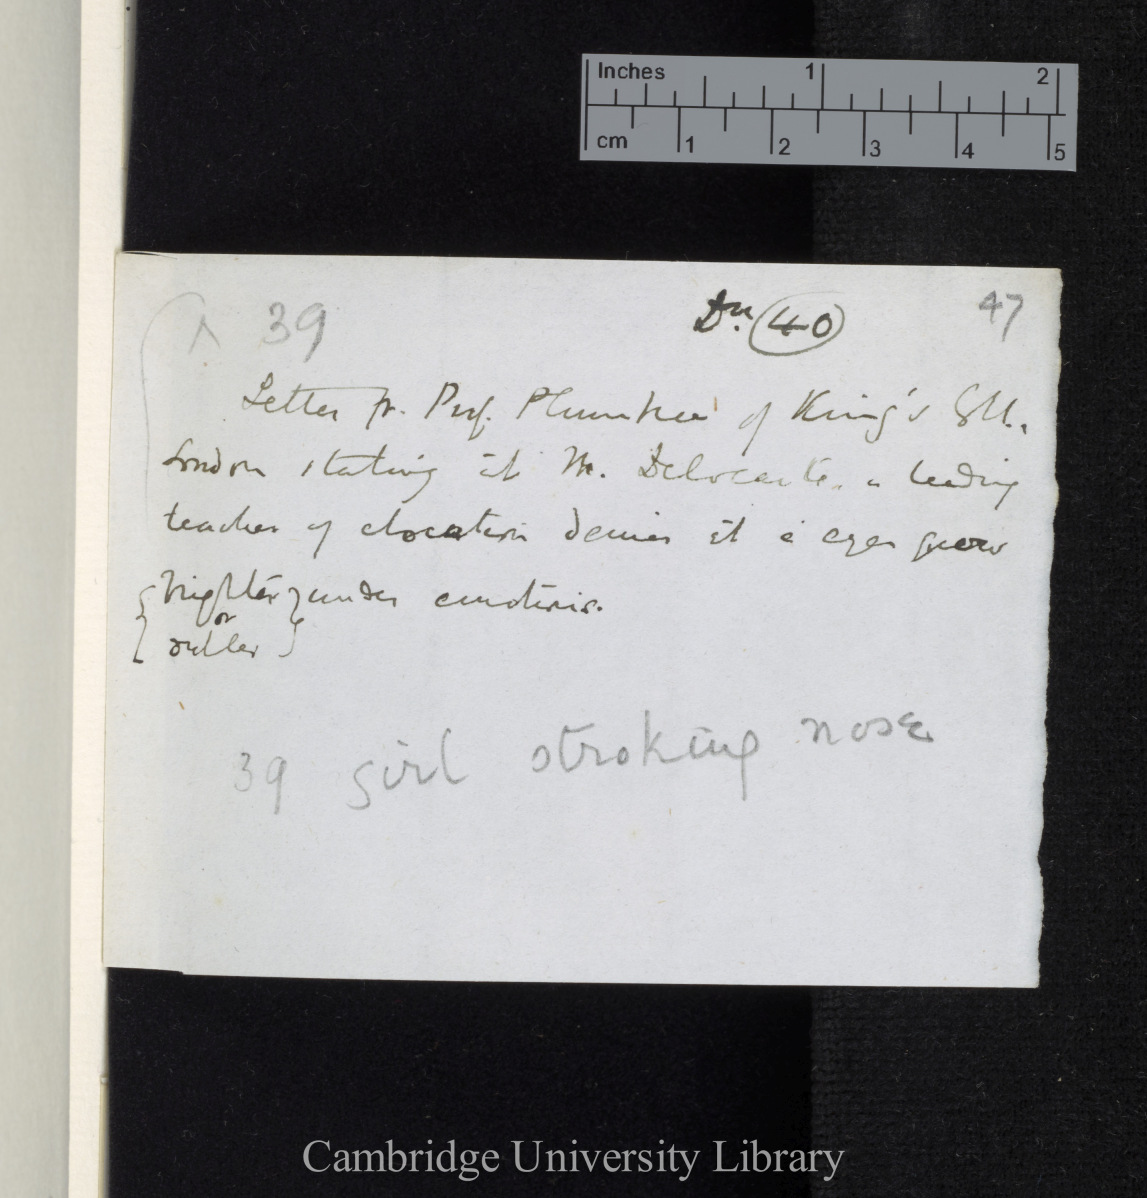 Inches 1 2
cm 1 2 3 4 5
39 Dn. 40 47
Letter fr. Prof. Plumtree of King's Coll.
London stating tt Mr. a leading
teacher of elocution denies tt e eyes grow
{brighter} under emotions.
or
{duller}
39 girl stroking nose
Cambridge University Library